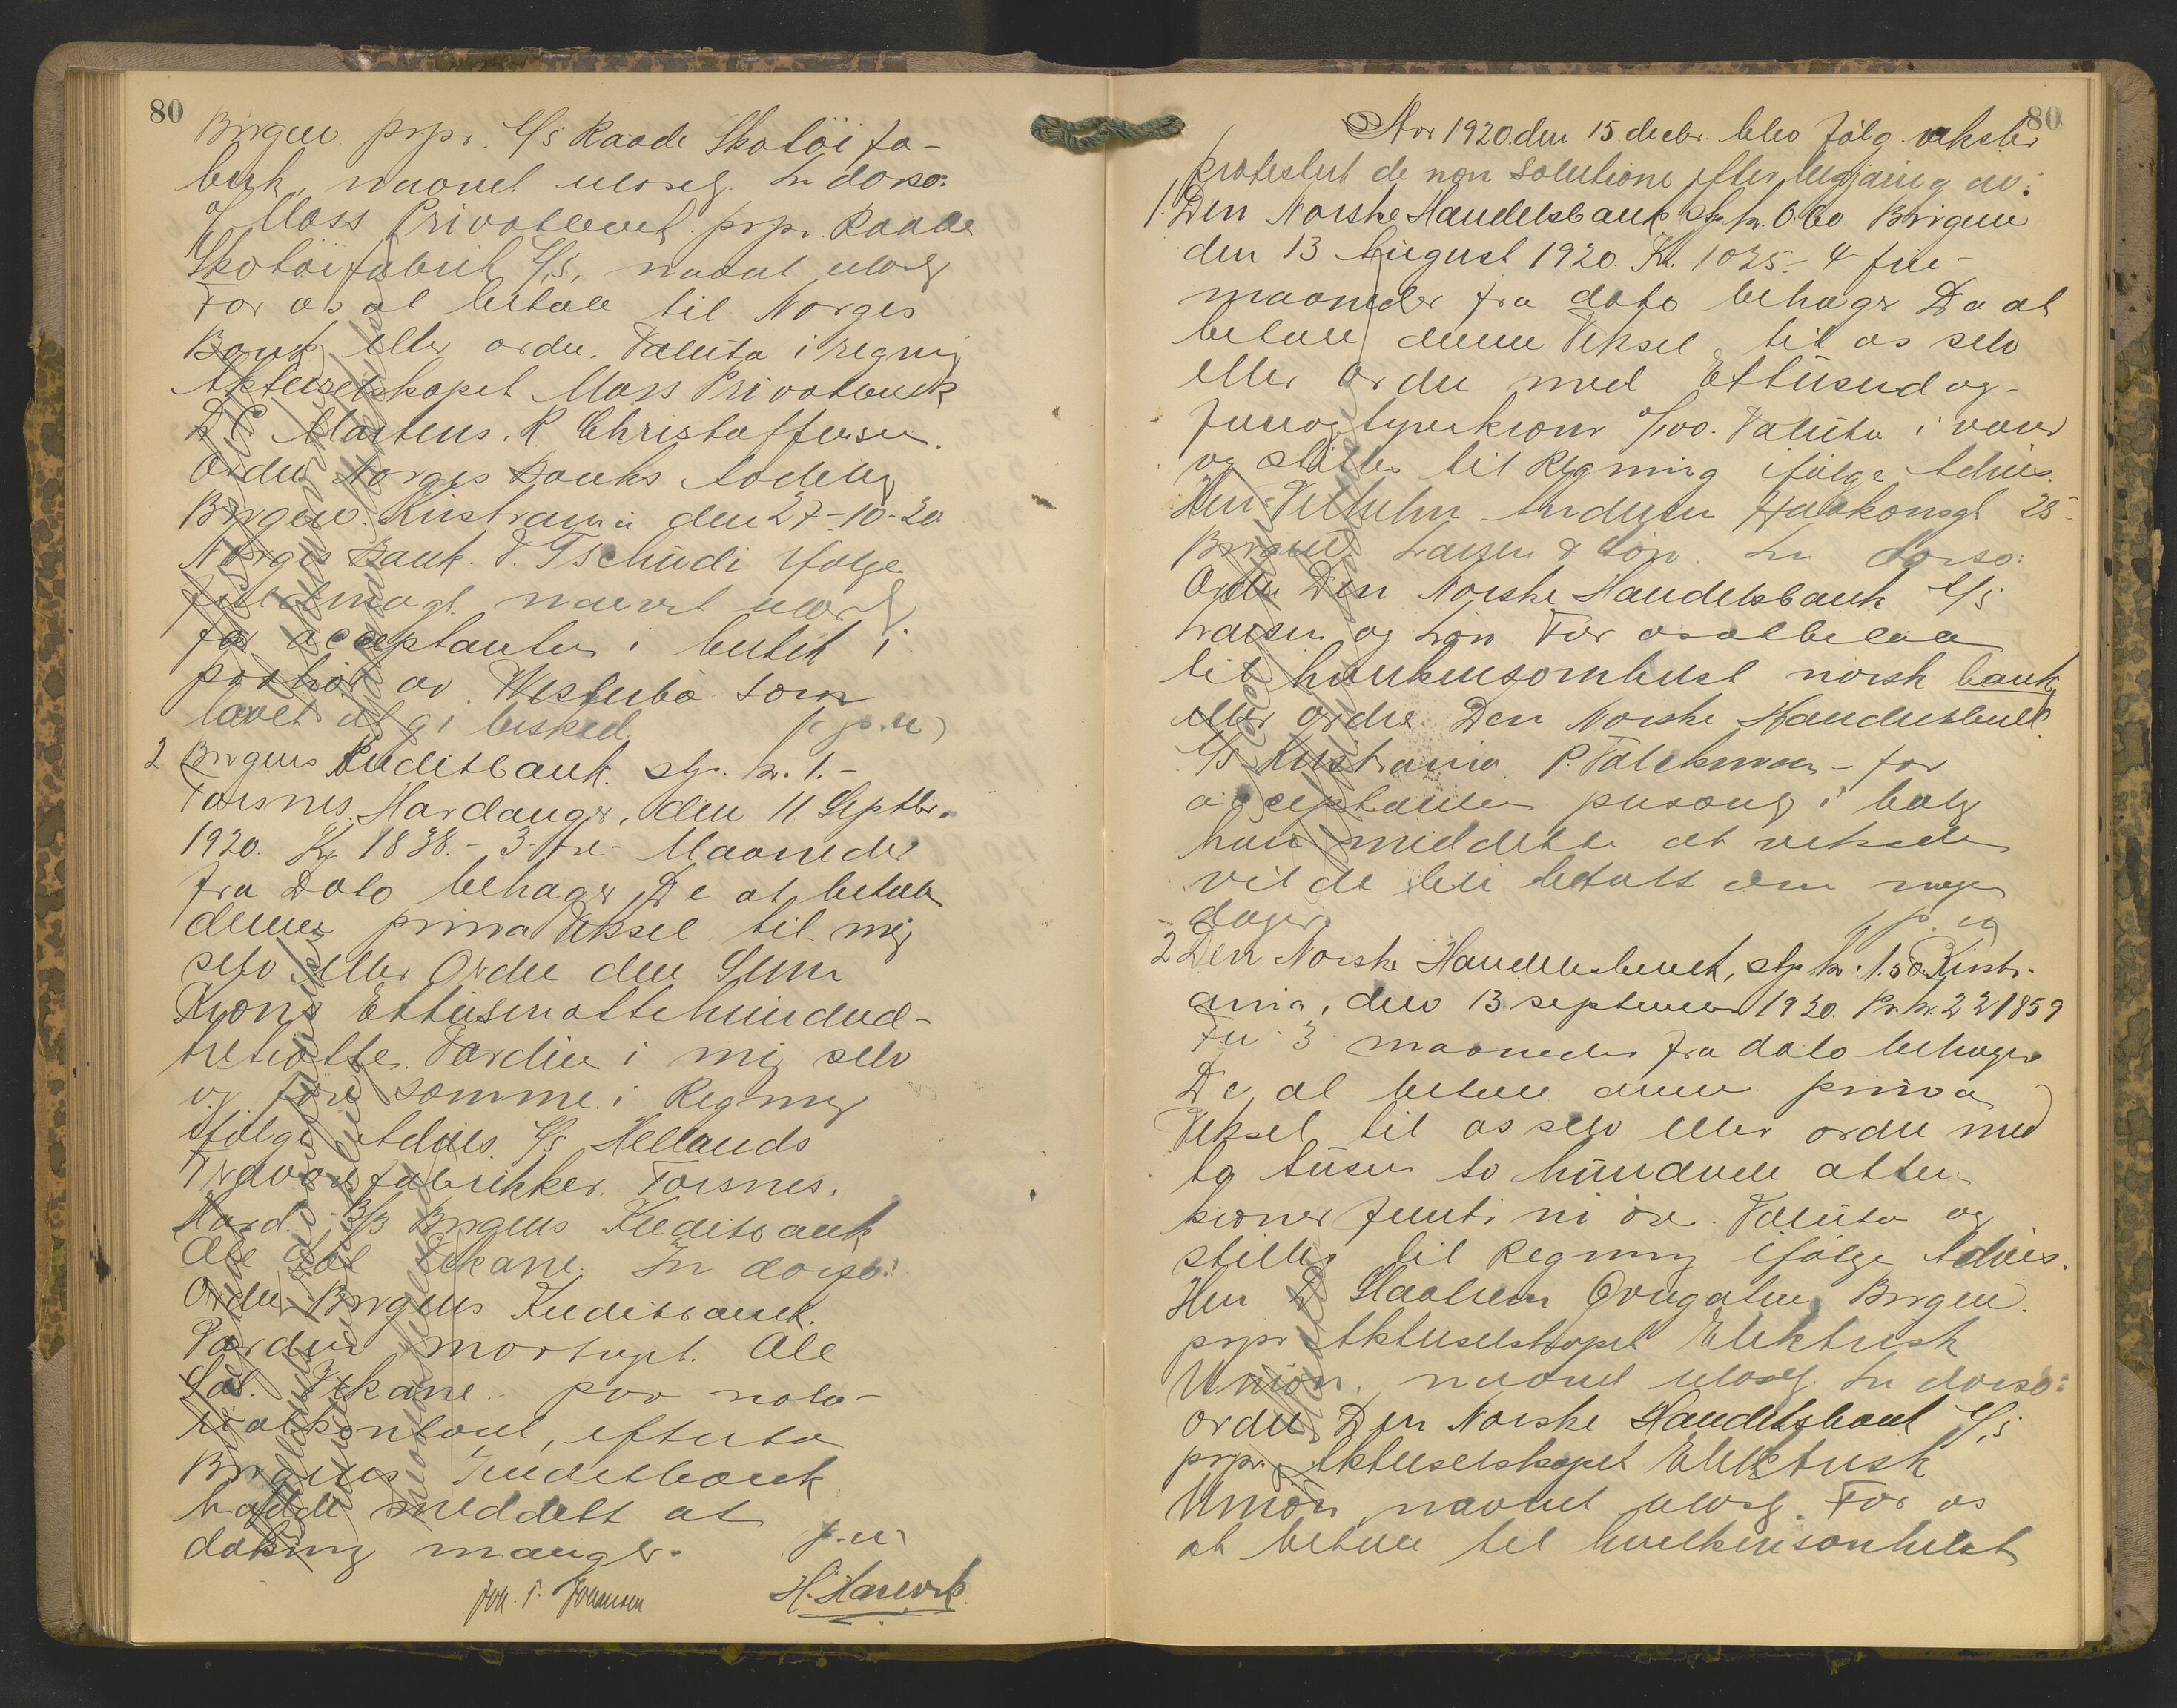 80
Bergen prpr. A/S Raade Skotöi fa-
brik, navnet ulæselg. In dorso:
A/S Moss Privatbank prpr. Raade
Skotöifabrik A/S, navnet ulæslg
For os at betale til Norges
Bank eller ordre. Valuta i regning
Aktieselskapet Moss Privatbank
Martens. R. Christoffersen.
Ordre Norges Banks Avdeling
Bergen. Kristiania den 27-10-20
Norges Bank. V. Tschudi ifølge
fuldmagt navnet ulæselg
for acceptanten i butik i
av. Westerbö som
lovet at gi besked. (p. u.)
2 Bergens Kreditbank. stp. kr. 1.-
Torsnes, Hardanger, den 11 Septbr.
1920. Kr 1838.- 3-tre- Maaneder
fra Dato behager De at betale
denne prima Veksel til mig
selv eller Ordre den Sum
Kroner Ettusenottehundred-
treti otte. Værdien i mig selv
og före samme i Regning
ifølge Advis. A/S Hellands
Trævarefabrikker. Torsnes.
Hard. Bergens Kreditbank
Ole Sal. Vikane. In dorso:
Ordre Bergens Kreditbank.
Værdien mottagt. Ole
Sal. Vikane. paa nota-
rialkontoret, efterat
Bergens Kreditbank
hadde meddelt at
dækning mangler. p. u.
Joh. F. Johansen H. Harevik
80
Aar 1920. den 15. decbr. blev følg. veksler
protestert de non solutione efter begjæring av:
1. Den Norske Handelsbank stp. kr. 0.60 Bergen
den 13 August 1920. Kr. 1025.- 4 fire-
maaneder fra dato behager De at
betale denne Veksel til os selv
eller ordre med Ettusend og-
femogtyvekroner 0/100. Valuta i varer
og stilles til Regning ifølge Advis.
Herr Vilhelm Andersen Haakonsgt 25-
Bergen. Larsen & Sön. In dorso:
Ordre Den Norske Handelsbank A/S
Larsen og Sön For os at betale
til hvilkensomhelst norsk bank
eller ordre. Den Norske Handelsbank
A/S Kristiania. P. Falckman - for
acceptanten personlg i bolig
han meddelte at vekselen
vilde bli betalt om nogen
dager. p. u.
2 Den Norske Handelsbank, stp. kr. 1.50. Kristi-
ania, den 13 september 1920. Pr. kr. 2218 59
Tre 3 maaneder fra dato behager
De at betale denne prima
Veksel til os selv eller ordre med
to tusen to hundrede atten
kroner femti ni öre. Valuta og
stilles til Regning ifølge Advis.
Herr Bergen.
prpr Aktieselskapet Elektrisk
Union, navnet ulæselg. In dorso:
ordre Den Norske Handelsbank A/S
prpr. Aktieselskapet Elektrisk
Union, navnet ulæslg. For os
at betale til hvilkensomhelst